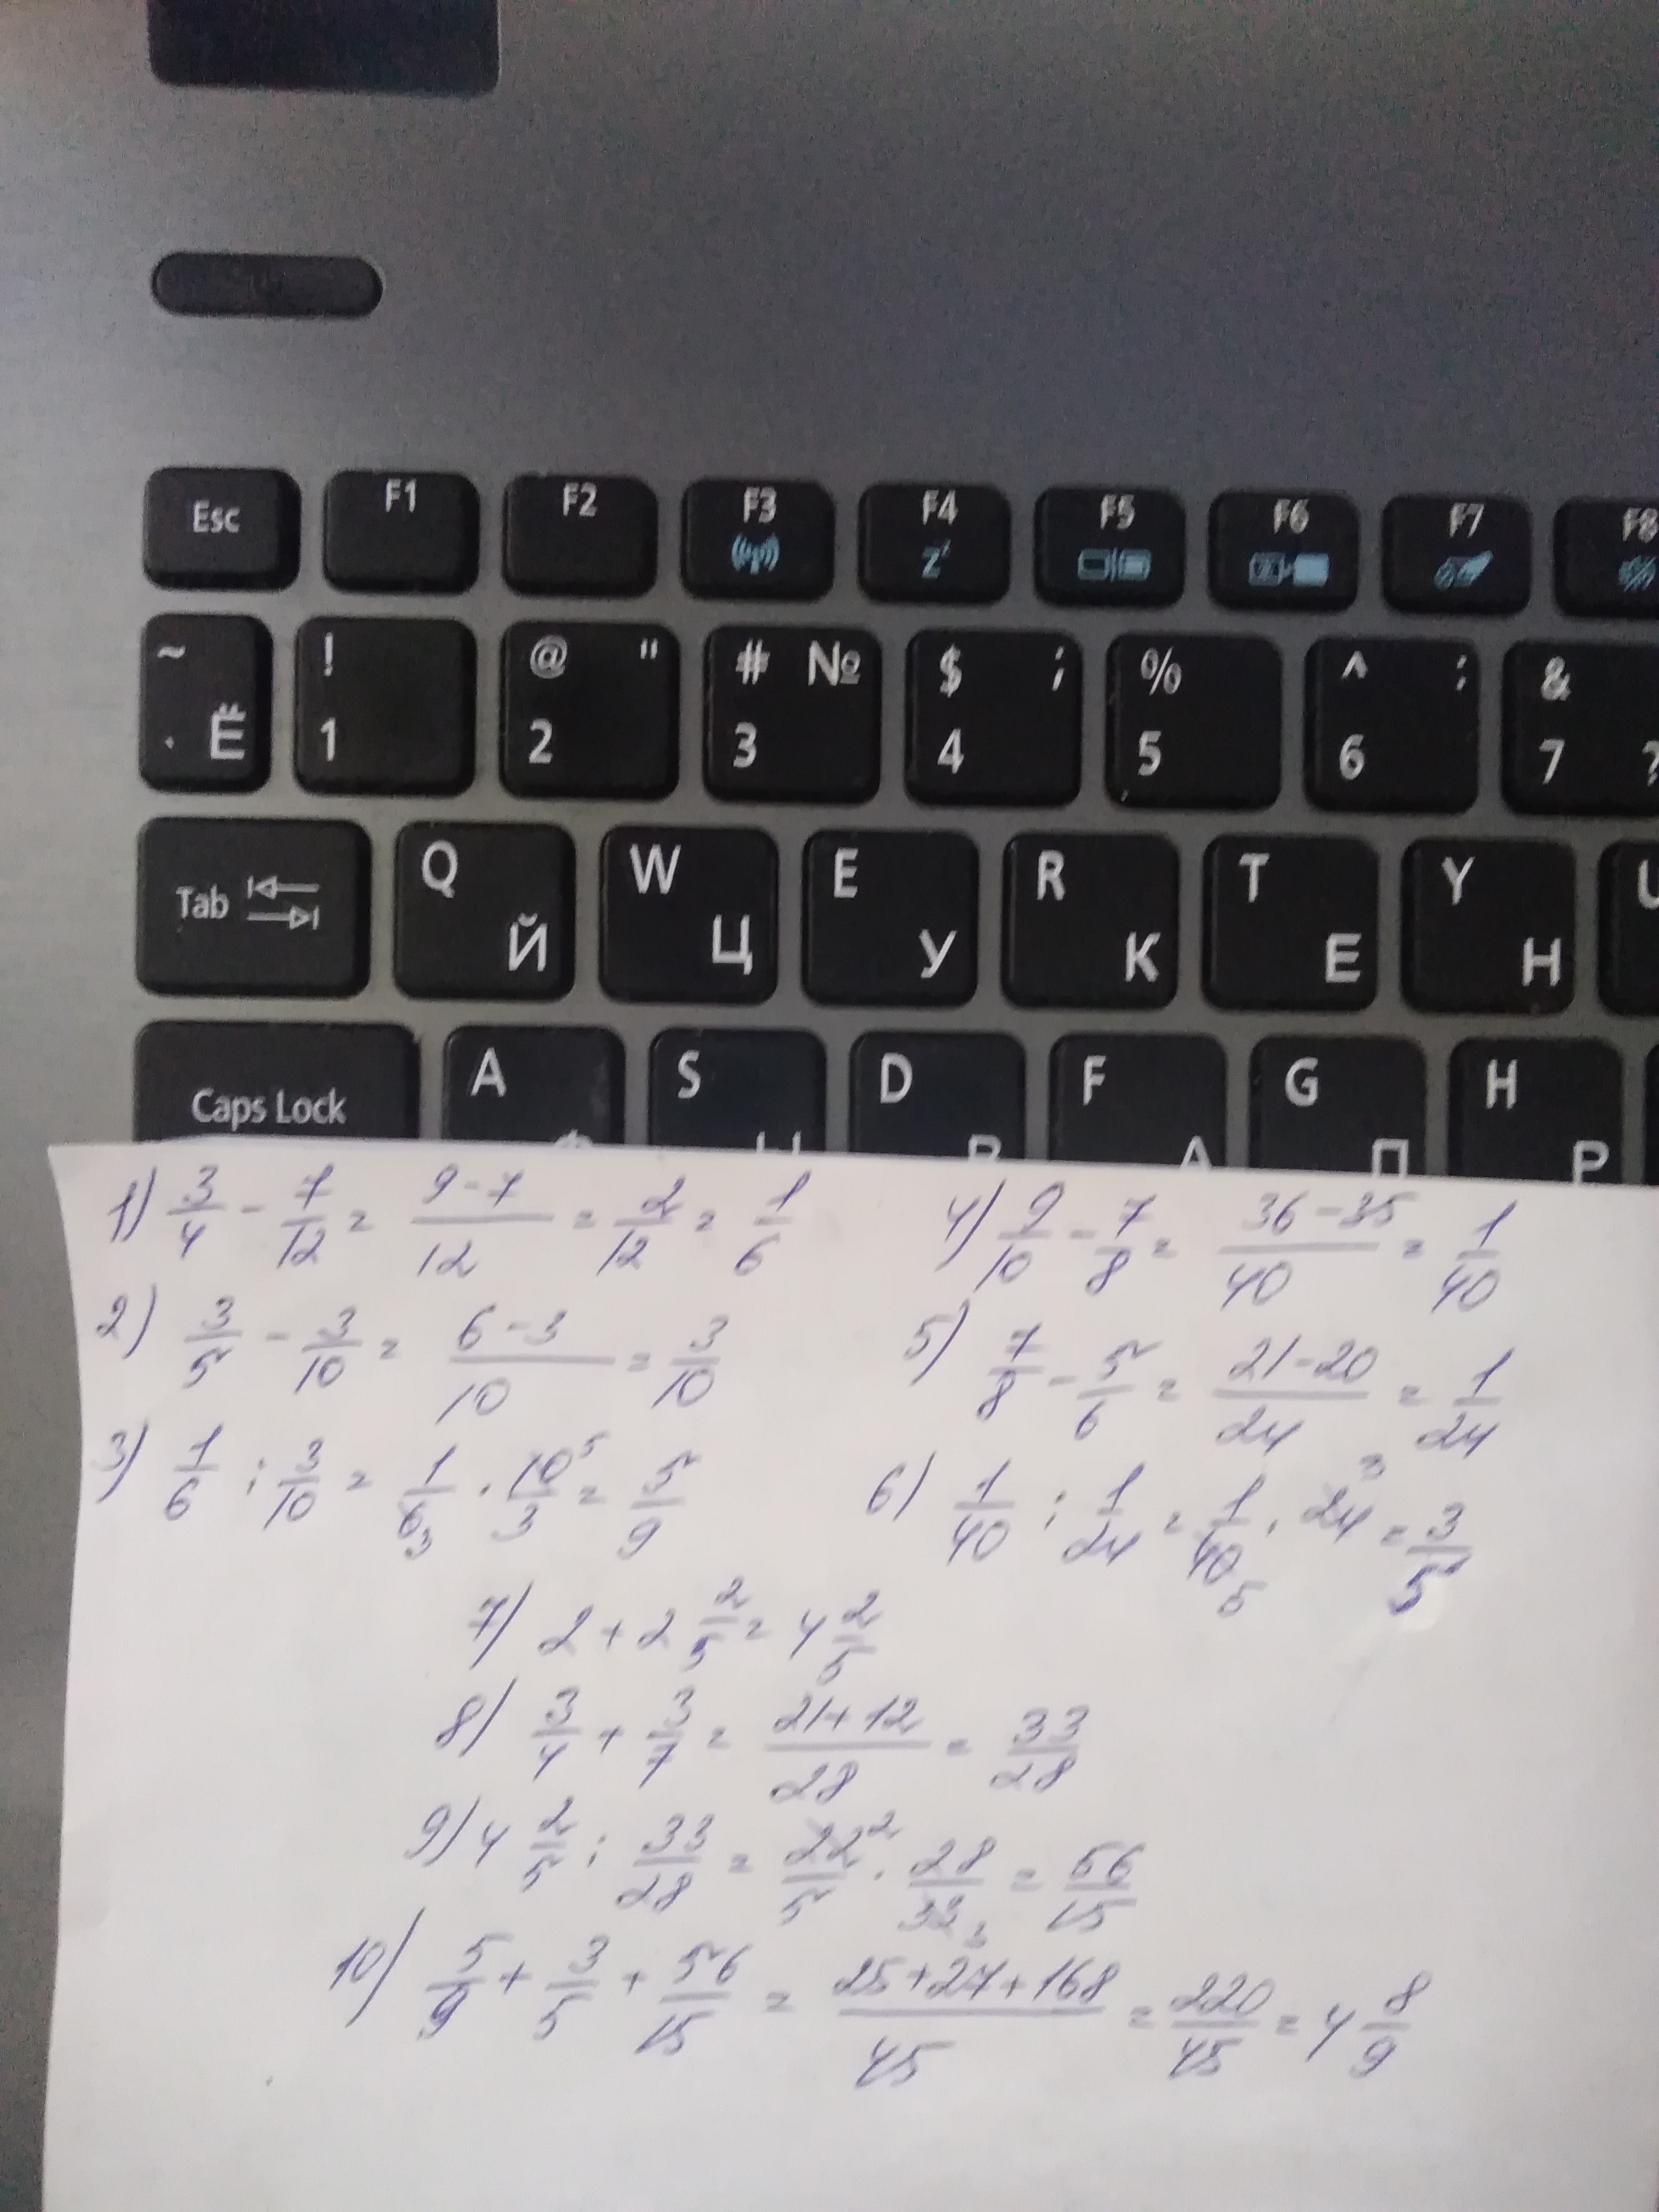 Esc F1 F2 F3 F4 F5 F6 F7 F8
~ Ё ! 1 @ " 2 # № 3 $ ; 4 % 5 ^ : 6 & 7 ?
Tab Q Й W Ц E У R К T Е Y Н U
Caps Lock A S D В F А G П H Р
1) 3/4 - 7/12 = 9-7/12 = 2/12 = 1/6
2) 3/5 - 3/10 = 6-3/10 = 3/10
3) 1/6 : 3/10 = 1/6 3 · 10 5/3 = 5/9
4) 9/10 - 7/8 = 36-35/40 = 1/40
5) 7/8 - 5/6 = 21-20/24 = 1/24
6) 1/40 : 1/24 = 1/40 5 · 24 3 = 3/5
7) 2 + 2 2/5 = 4 2/5
8) 3/4 + 3/7 = 21+12/28 = 33/28
9) 4 2/5 : 33/28 = 22 2/5 · 28/33 3 = 56/15
10) 5/9 + 3/5 + 56/15 = 25+27+168/45 = 220/45 = 4 8/9